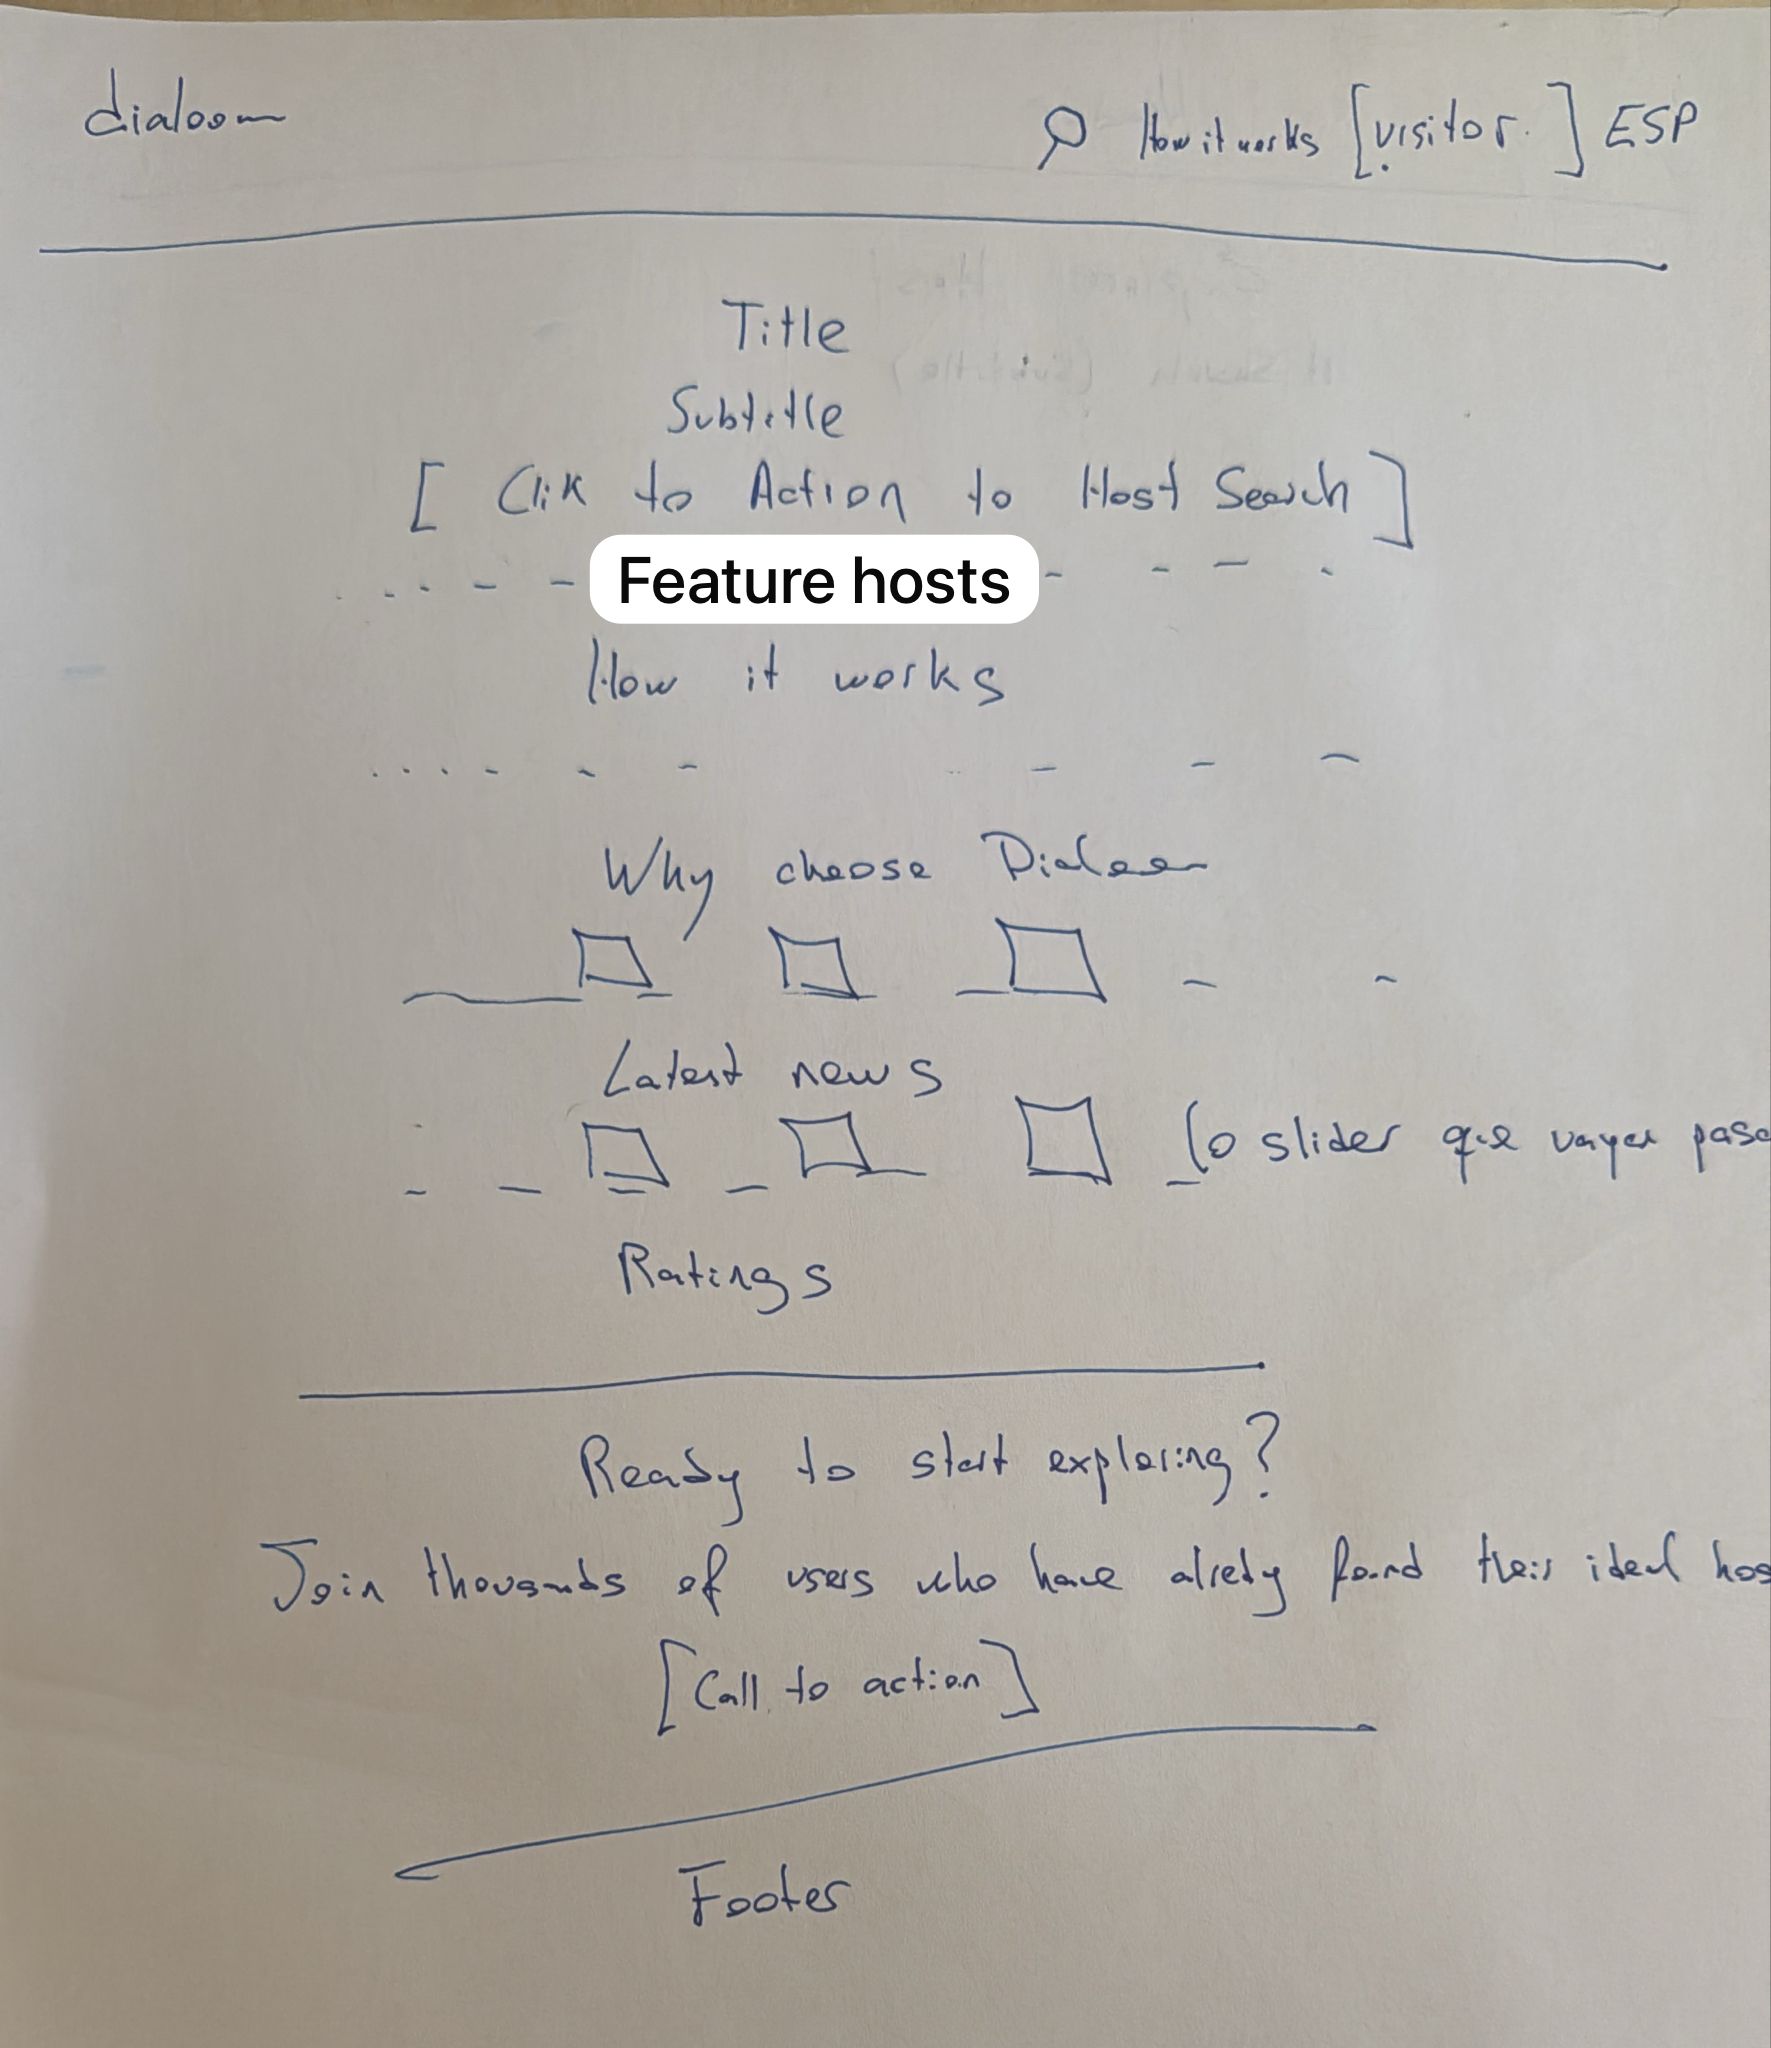 dialoom
How it works [visitor.] ESP
Title
Subtitle
[ Clik to Action to Host Search ]
Feature hosts
How it works
Why choose Dialoom
Latest news
(o slider que vayan pasa
Ratings
Ready to start exploring?
Join thousands of users who have alredy found their ideal hos
[Call to action]
Footer